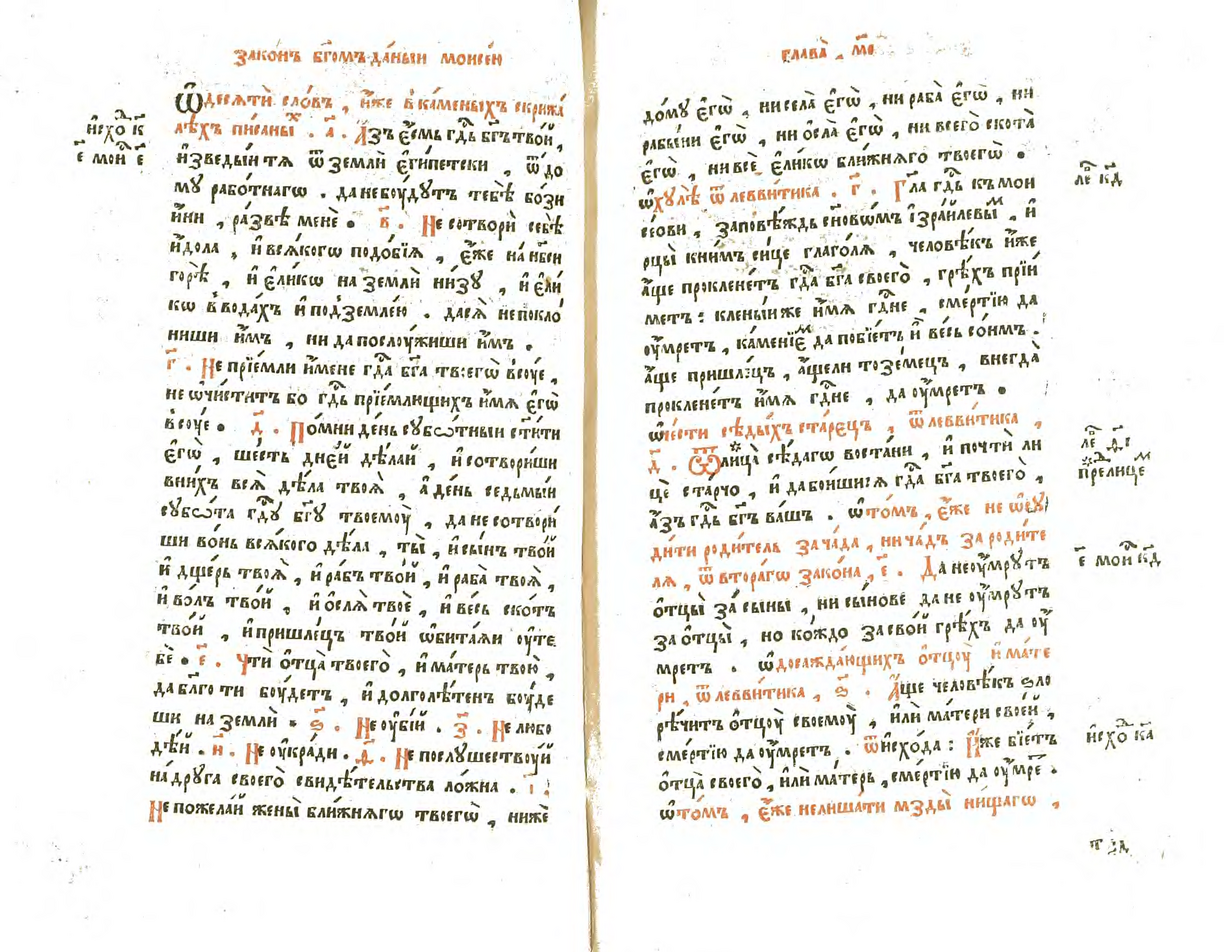 Зако́нъ бг҃омъ да́ныи моисе́ю
Ѡ҆ десѧтѝ сло́въ , и҆́же в҆ ка́меныхъ скрижа́
лѣхъ пи́саныⷯ . а҃ . А҆́зъ є҆́смь гдⷭ҇ь бг҃ъ тво́й ,
и҆схоⷣ к҃
є҃ моиⷭ҇ є҃
и҆зведы́и тѧ ѿ землѝ є҆гѵ́петски , ѿ до́
мꙋ рабо́тнагѡ . да не бꙋ́дꙋтъ тебѣ̀ бо́зи
и҆́ни , ра́звѣ менѐ . в҃ . Не сотворѝ себѣ̀
и҆́дола , и҆ всѧ́когѡ подо́бїѧ , є҆́же на нб҃сѝ
горѣ̀ , и҆ є҆ли́кѡ на землѝ ни́зꙋ , и҆ є҆ли́
кѡ в҆ вода́хъ и҆ под̾ землею . да сѧ̀ не покло́
ниши и҆̀мъ , ни да послꙋ́жиши и҆̀мъ .
г҃ . Не прїе́мли и҆́мене гдⷭ҇а бг҃а твоегѡ̀ всꙋе ,
не ѡ҆чи́ститъ бо гдⷭ҇ь прїе́млющихъ и҆́мѧ є҆гѡ̀
в҆сꙋе . д҃ . По́мни де́нь сꙋбѡ́тныи ст҃и́ти
є҆гѡ̀ , ше́сть дне́й дѣ́лай , и҆ сотвори́ши
вни́хъ всѧ̀ дѣ́ла твоѧ̀ , а҆ де́нь седьмы́и
сꙋбѡ́та гдⷭ҇ꙋ бг҃ꙋ твоемꙋ̀ , да не сотвори́
ши во́нь всѧ́кого дѣ́ла , ты̀ , и҆ сы́нъ тво́й
и҆ дще́рь твоѧ̀ , и҆ ра́бъ тво́й , и҆ раба̀ твоѧ̀ ,
и҆ во́лъ тво́й , и҆ ослѧ̀ твоѐ , и҆ ве́сь ско́тъ
тво́й , и҆ пришле́цъ тво́й ѡ҆бита́ѧи ᲂу҆ те
бѐ . є҃ . Чтѝ ѻ҆тца̀ твоего̀ , и҆ ма́терь твою̀ ,
да бл҃го ти бꙋ́детъ , и҆ долголѣ́тенъ бꙋ́де
ши на землѝ . ѕ҃ . Не ᲂу҆бі́й . з҃ . Не любо
дѣ́й . и҃ . Не ᲂу҆кра́ди . ѳ҃ . Не послꙋ́шествꙋй
на дрꙋ́га своего̀ свидѣ́тельства ло́жна . і҃ .
Не пожела́й жены̀ бли́жнѧгѡ твоегѡ̀ , нижѐ
глава̀ , м҃ѳ
до́мꙋ є҆гѡ̀ , ни села̀ є҆гѡ̀ , ни раба̀ є҆гѡ̀ , ни
рабы́ни є҆гѡ̀ , ни ѻ҆сла̀ є҆гѡ̀ , ни всего̀ скота̀
є҆гѡ̀ , ни всѐ є҆ли́кѡ бли́жнѧго твоегѡ̀ .
ѡ҆ хꙋлѣ̀ ѿ левви́тика . г҃ . Гл҃а гдⷭ҇ь к̾ мои
ле҃ кд҃
се́ови , запове́ждь сн҃овѡ́мъ і҆зра́илевыⷨ , и҆
рцы̀ кни́мъ си́це глаго́лѧ , человѣ́къ и҆́же
а҆́ще проклене́тъ гдⷭ҇а бг҃а своего̀ , грѣ́хъ прїи́
метъ : клены́и же и҆́мѧ гдⷭ҇не , сме́ртїю да
ᲂу҆́мретъ , ка́менїеⷨ да побїе́тъ и҆̀ ве́сь со́нмъ .
а҆́ще пришле́цъ , а҆́ще ли то́земецъ , внегда̀
проклене́тъ и҆́мѧ гдⷭ҇не , да ᲂу҆́мретъ .
ѡ҆ че́сти сѣды́хъ ста́рецъ , ѿ левви́тика ,
д҃ . Ѿ лица̀ сѣда́гѡ воста́ни , и҆ почтѝ ли
ле҃ ѳ҃і
прⷣе лице́мъ
цѐ ста́рчо , и҆ да бои́шисѧ гдⷭ҇а бг҃а твоего̀ ,
а҆́зъ гдⷭ҇ь бг҃ъ ва́шъ . ѡ҆ то́мъ , є҆́же не ѡ҆сꙋ
ди́ти роди́тель за ча́да , ни ча́дъ за роди́те
лѧ , ѿ втора́гѡ зако́на , є҃ . Да не ᲂу҆́мрꙋтъ
є҃ моиⷭ҇ кд҃
ѻ҆тцы̀ за́ сыны , ни сы́нове да не ᲂу҆́мрꙋтъ
за ѻ҆тцы̀ , но ко́ждо за сво́й грѣ́хъ да ᲂу҆́
мретъ . ѡ҆ досажда́ющихъ ѻ҆тцꙋ̀ и҆ ма́те
ри , ѿ левви́тика , ѕ҃ . А҆́ще человѣ́къ ѕло
рѣ́читъ ѻ҆тцꙋ̀ своемꙋ̀ , и҆лѝ ма́тери свое́й ,
сме́ртїю да ᲂу҆́мретъ . ѿ и҆схо́да : И҆́же бїе́тъ
и҆схоⷣ ка҃
ѻ҆тца̀ своего̀ , и҆лѝ ма́терь , сме́ртїю да ᲂу҆́мреⷮ .
ѡ҆ то́мъ , є҆́же не лиша́ти мзды̀ ни́щагѡ ,